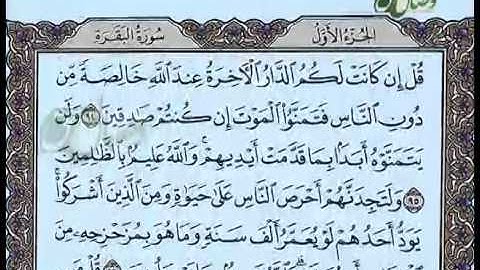 الجزء الأول
سورة البقرة
قُلْ إِن كَانَتْ لَكُمُ الدَّارُ الْآخِرَةُ عِندَ اللَّهِ خَالِصَةً مِّن
دُونِ النَّاسِ فَتَمَنَّوُا الْمَوْتَ إِن كُنتُمْ صَادِقِينَ ٩٤ وَلَن
يَتَمَنَّوْهُ أَبَدًا بِمَا قَدَّمَتْ أَيْدِيهِمْ ۗ وَاللَّهُ عَلِيمٌ بِالظَّالِمِينَ
٩٥ وَلَتَجِدَنَّهُمْ أَحْرَصَ النَّاسِ عَلَىٰ حَيَاةٍ وَمِنَ الَّذِينَ أَشْرَكُوا ۚ
يَوَدُّ أَحَدُهُمْ لَوْ يُعَمَّرُ أَلْفَ سَنَةٍ وَمَا هُوَ بِمُزَحْزِحِهِ مِنَ